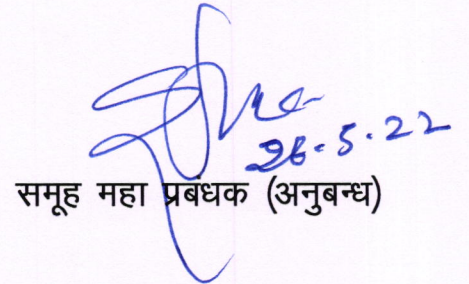 26.5.22
समूह महा प्रबंधक (अनुबन्ध)